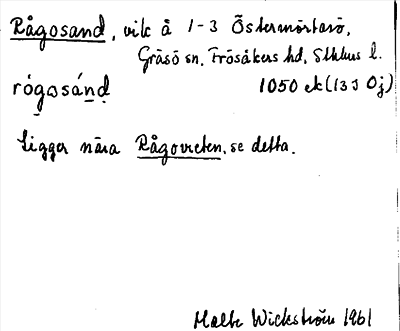 Rågosand, vik å 1-3 Östermörtarö,
Gräsö sn. Frösåkers hd, Sthlms l.
rógosánd 1050 ek (13 J 0j)
Ligger nära Rågovreten, se detta.
Malte Wickström 1961